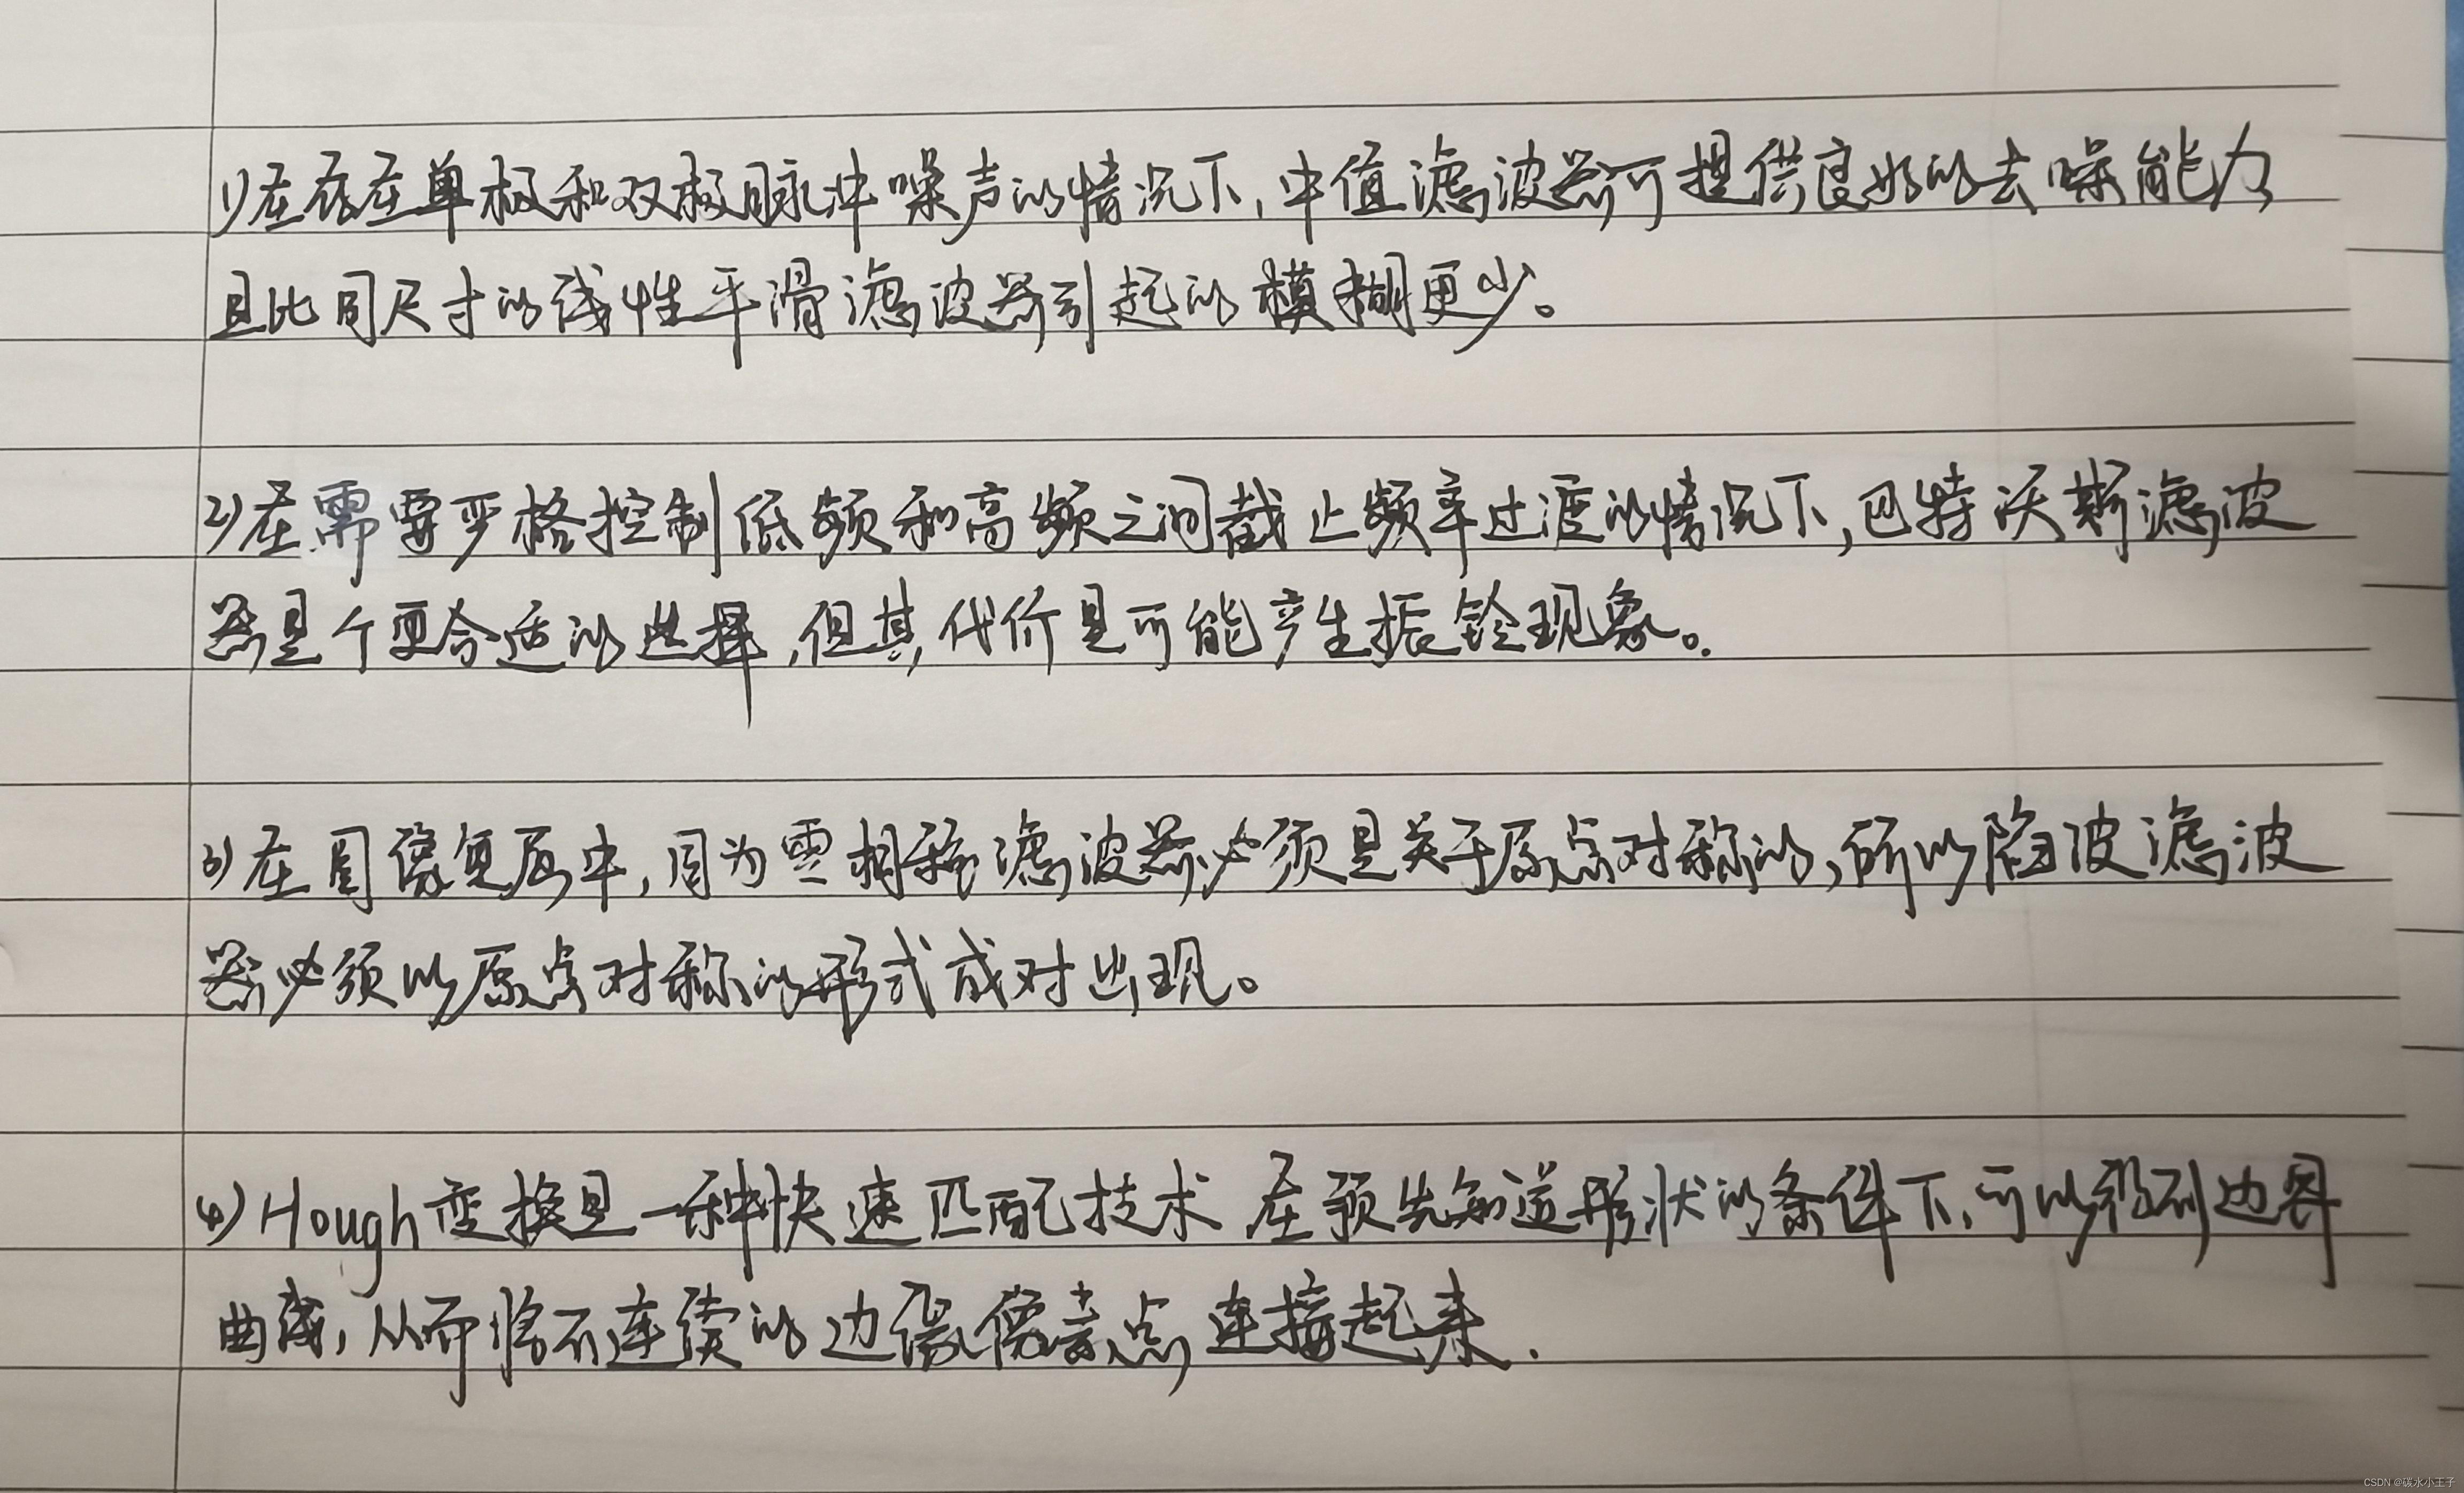 1)在存在单极和双极脉冲噪声的情况下,中值滤波器可提供良好的去噪能力
且比同尺寸的线性平滑滤波器引起的模糊更少。
2)在需要严格控制低频和高频之间截止频率过渡的情况下,巴特沃斯滤波
器是个更合适的选择,但其代价是可能产生振铃现象。
3)在图像复原中,因为零相移滤波器必须是关于原点对称的,所以陷波滤波
器必须以原点对称的形式成对出现。
4)Hough变换是一种快速匹配技术 在预先知道形状的条件下,可以得到边界
曲线,从而将不连续的边缘像素点连接起来.
CSDN @碳水小王子